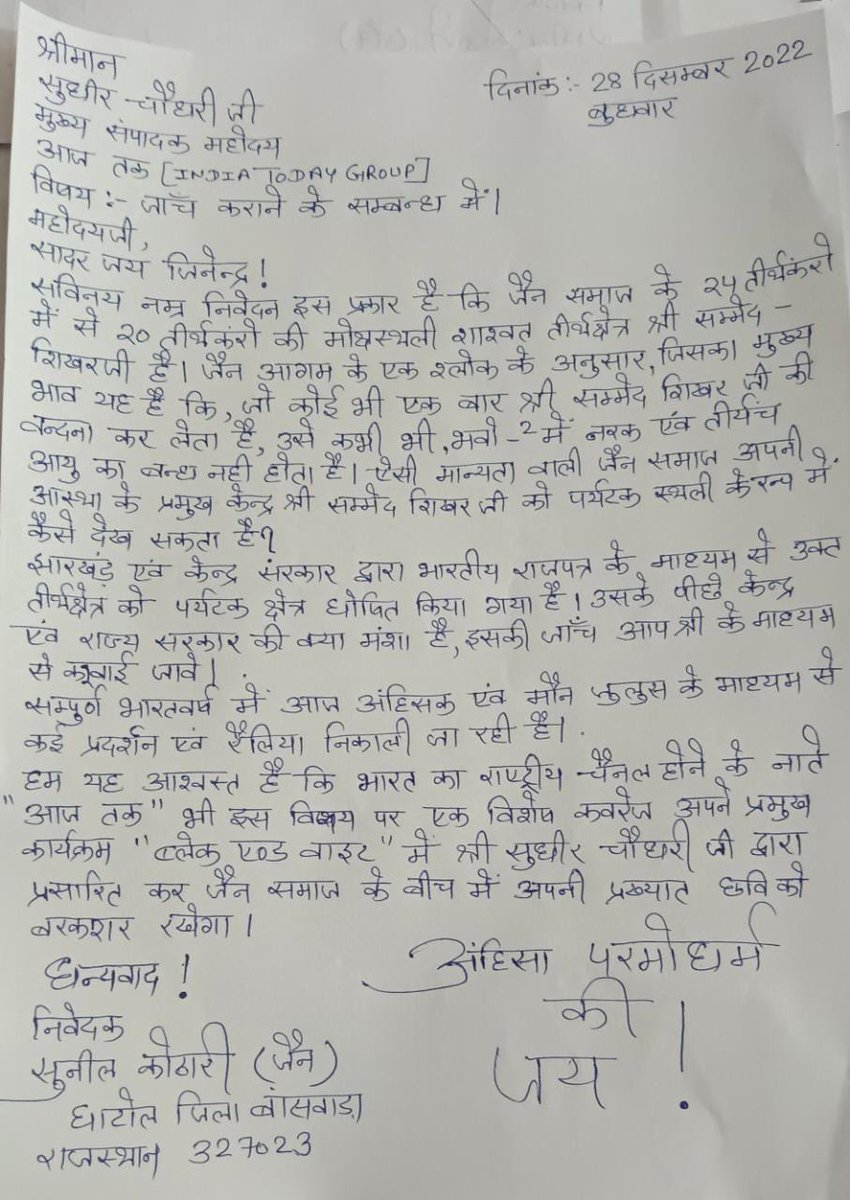 श्रीमान
दिनांक:- 28 दिसम्बर 2022
सुधीर चौधरी जी
बुधवार
मुख्य संपादक महोदय
आज तक [INDIA TODAY GROUP]
विषय:- जाँच कराने के सम्बन्ध में।
महोदयजी,
सादर जय जिनेन्द्र!
सविनय नम्र निवेदन इस प्रकार है कि जैन समाज के २४ तीर्थकंरो
में से २० तीर्थकंरो की मोक्षस्थली शाश्वत तीर्थक्षेत्र श्री सम्मेद-
शिखरजी है। जैन आगम के एक श्लोक के अनुसार, जिसका मुख्य
भाव यह है कि, जो कोई भी एक बार श्री सम्मेद शिखर जी की
वन्दना कर लेता है, उसे कभी भी, भवो-२ में नरक एवं तीर्यंच
आयु का बन्ध नही होता है। ऐसी मान्यता वाली जैन समाज अपनी
आस्था के प्रमुख केन्द्र श्री सम्मेद शिखर जी को पर्यटक स्थली के रूप में
कैसे देख सकता है?
झारखंड़ एवं केन्द्र सरकार द्वारा भारतीय राजपत्र के माध्यम से उक्त
तीर्थक्षेत्र को पर्यटक क्षेत्र घोषित किया गया है। उसके पीछे केन्द्र
एवं राज्य सरकार की क्या मंशा है, इसकी जाँच आप श्री के माध्यम
से करवाई जावे।
सम्पुर्ण भारतवर्ष में आज अंहिसक एवं मौन जुलुस के माध्यम से
कई प्रदर्शन एवं रैलिया निकाली जा रही है।
हम यह आश्वस्त है कि भारत का राष्ट्रीय चैनल होने के नाते
"आज तक" भी इस विषय पर एक विशेष कवरेज अपने प्रमुख
कार्यक्रम "ब्लेक एण्ड वाइट" में श्री सुधीर चौधरी जी द्वारा
प्रसारित कर जैन समाज के बीच में अपनी प्रख्यात छवि को
बरकरार रखेगा।
धन्यवाद!
अंहिसा परमोधर्म
की
जय!
निवेदक
सुनील कोठारी (जैन)
घाटोल जिला बांसवाड़ा
राजस्थान 327023